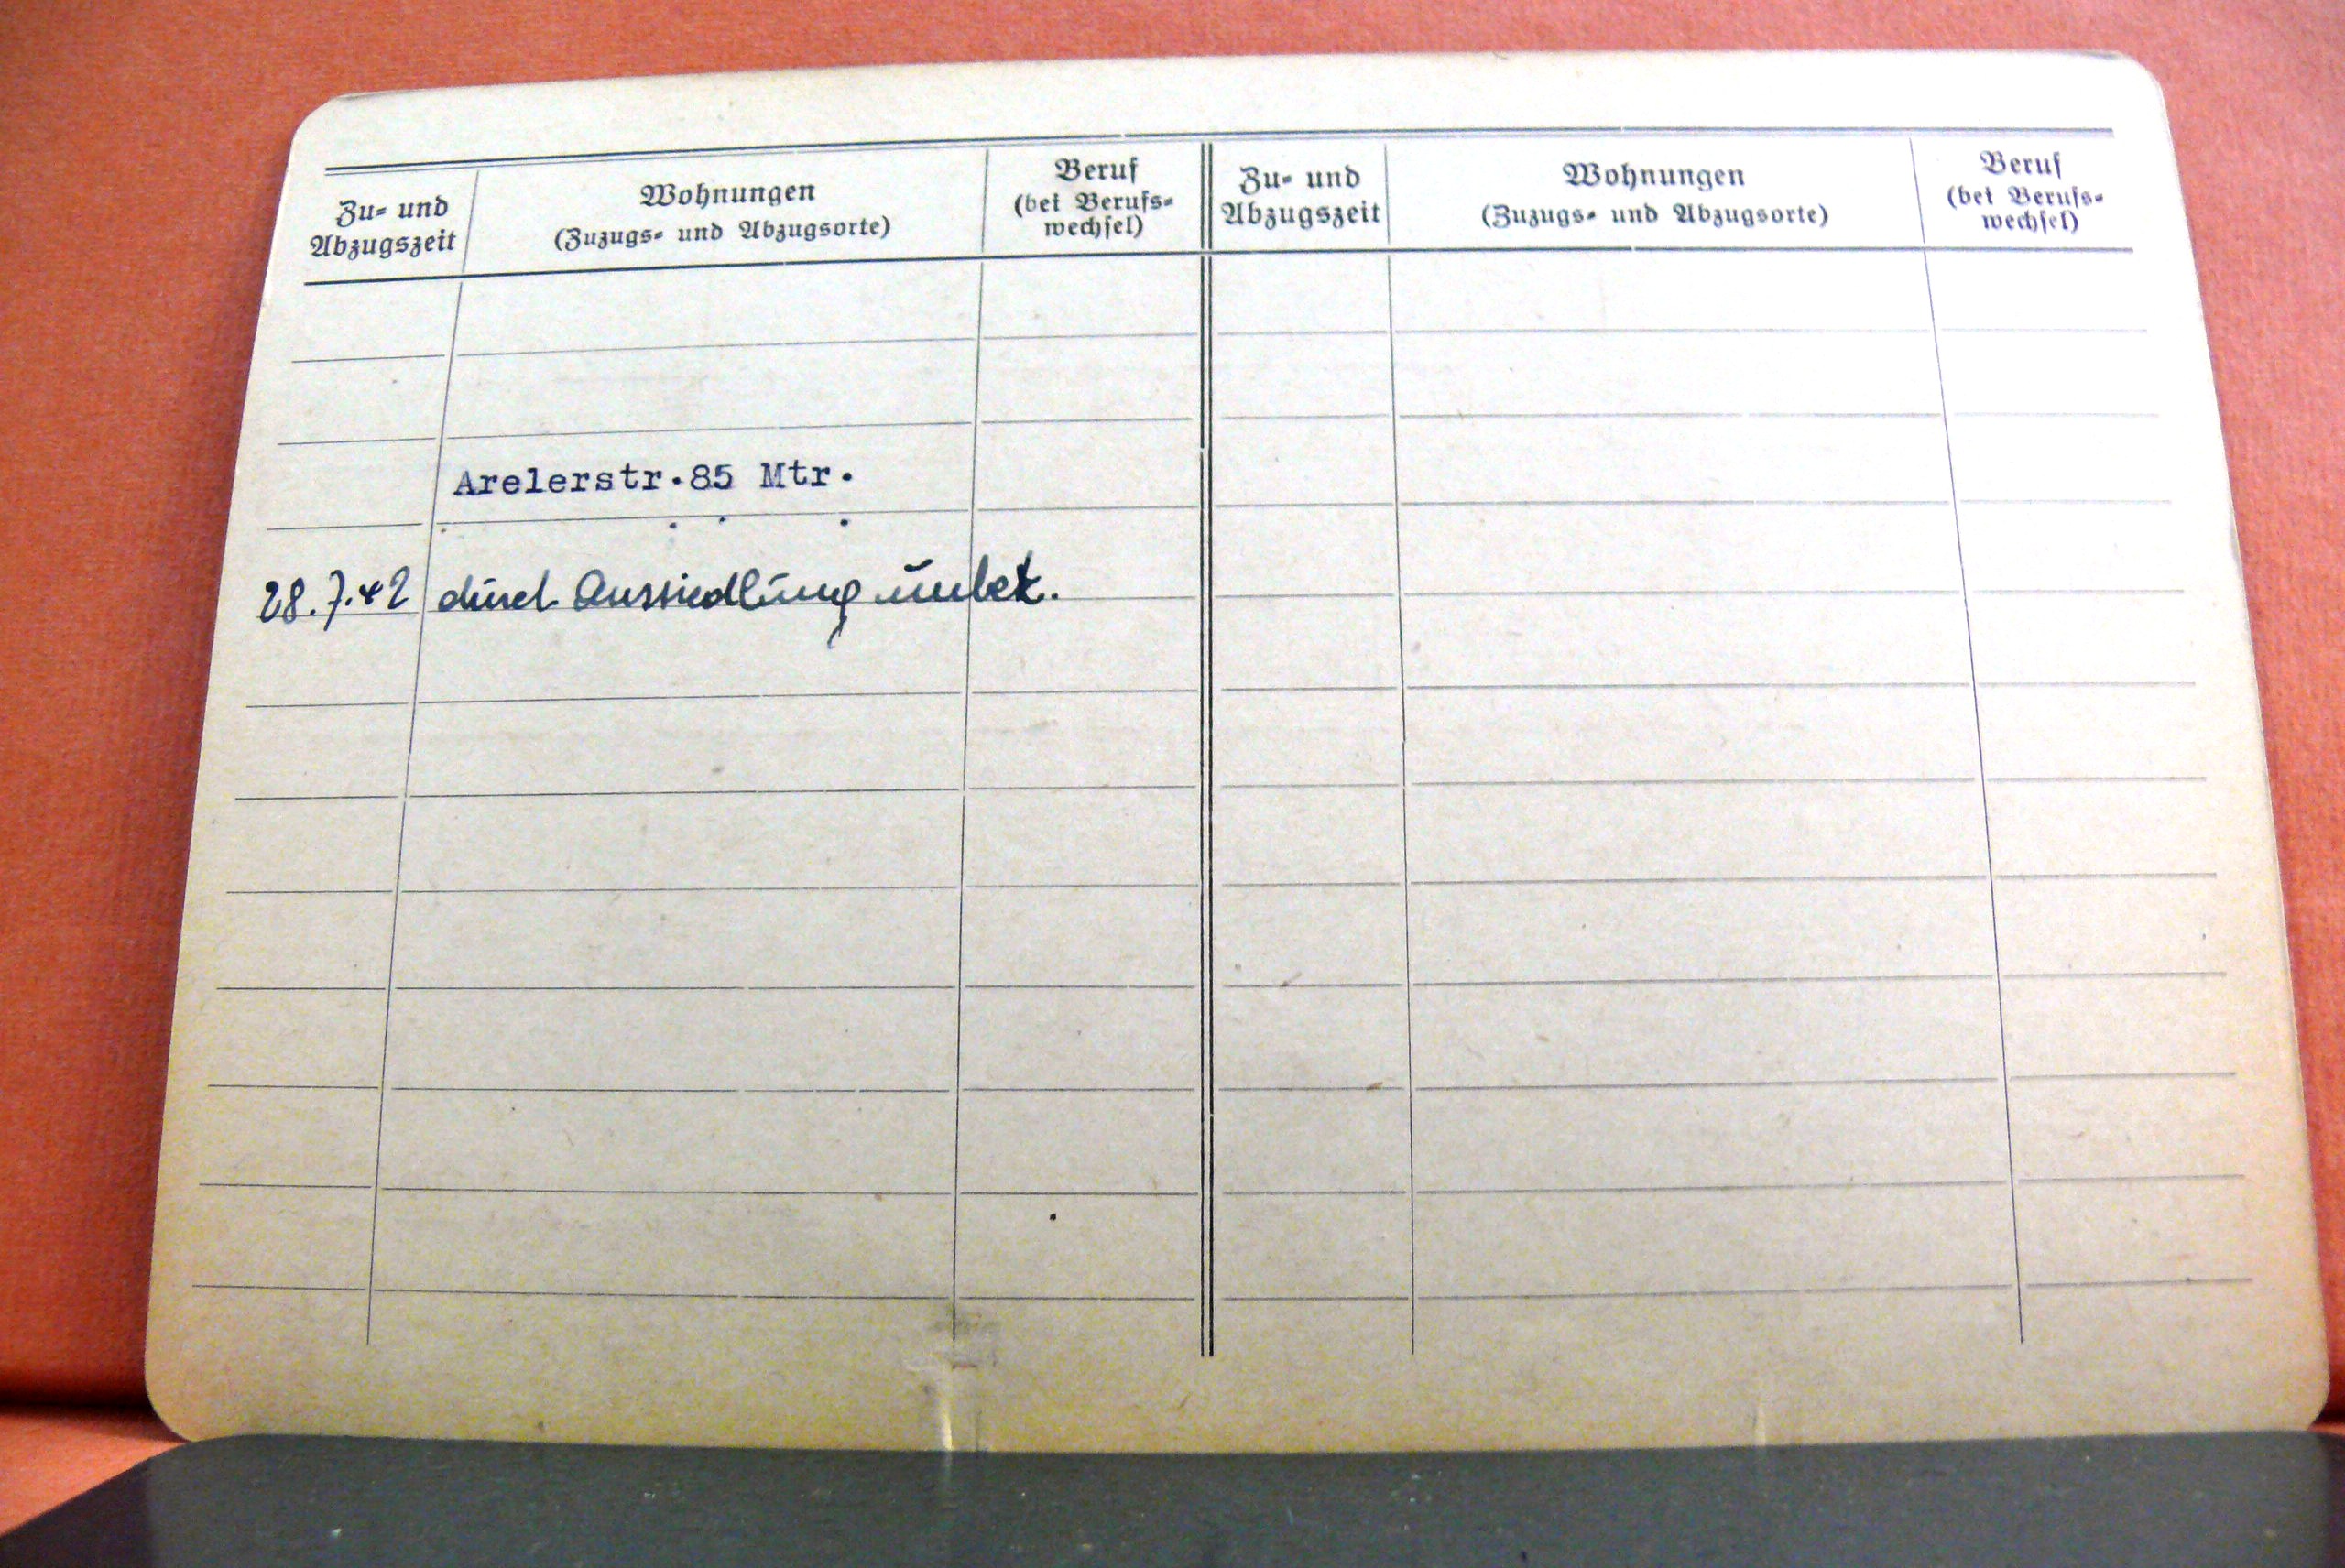 Zu- und
Abzugszeit
Wohnungen
(Zuzugs- und Abzugsorte)
Beruf
(bei Berufs-
wechsel)
Zu- und
Abzugszeit
Wohnungen
(Zuzugs- und Abzugsorte)
Beruf
(bei Berufs-
wechsel)
Arelerstr.85 Mtr.
28.7.42 durch Aussiedlung unbek.